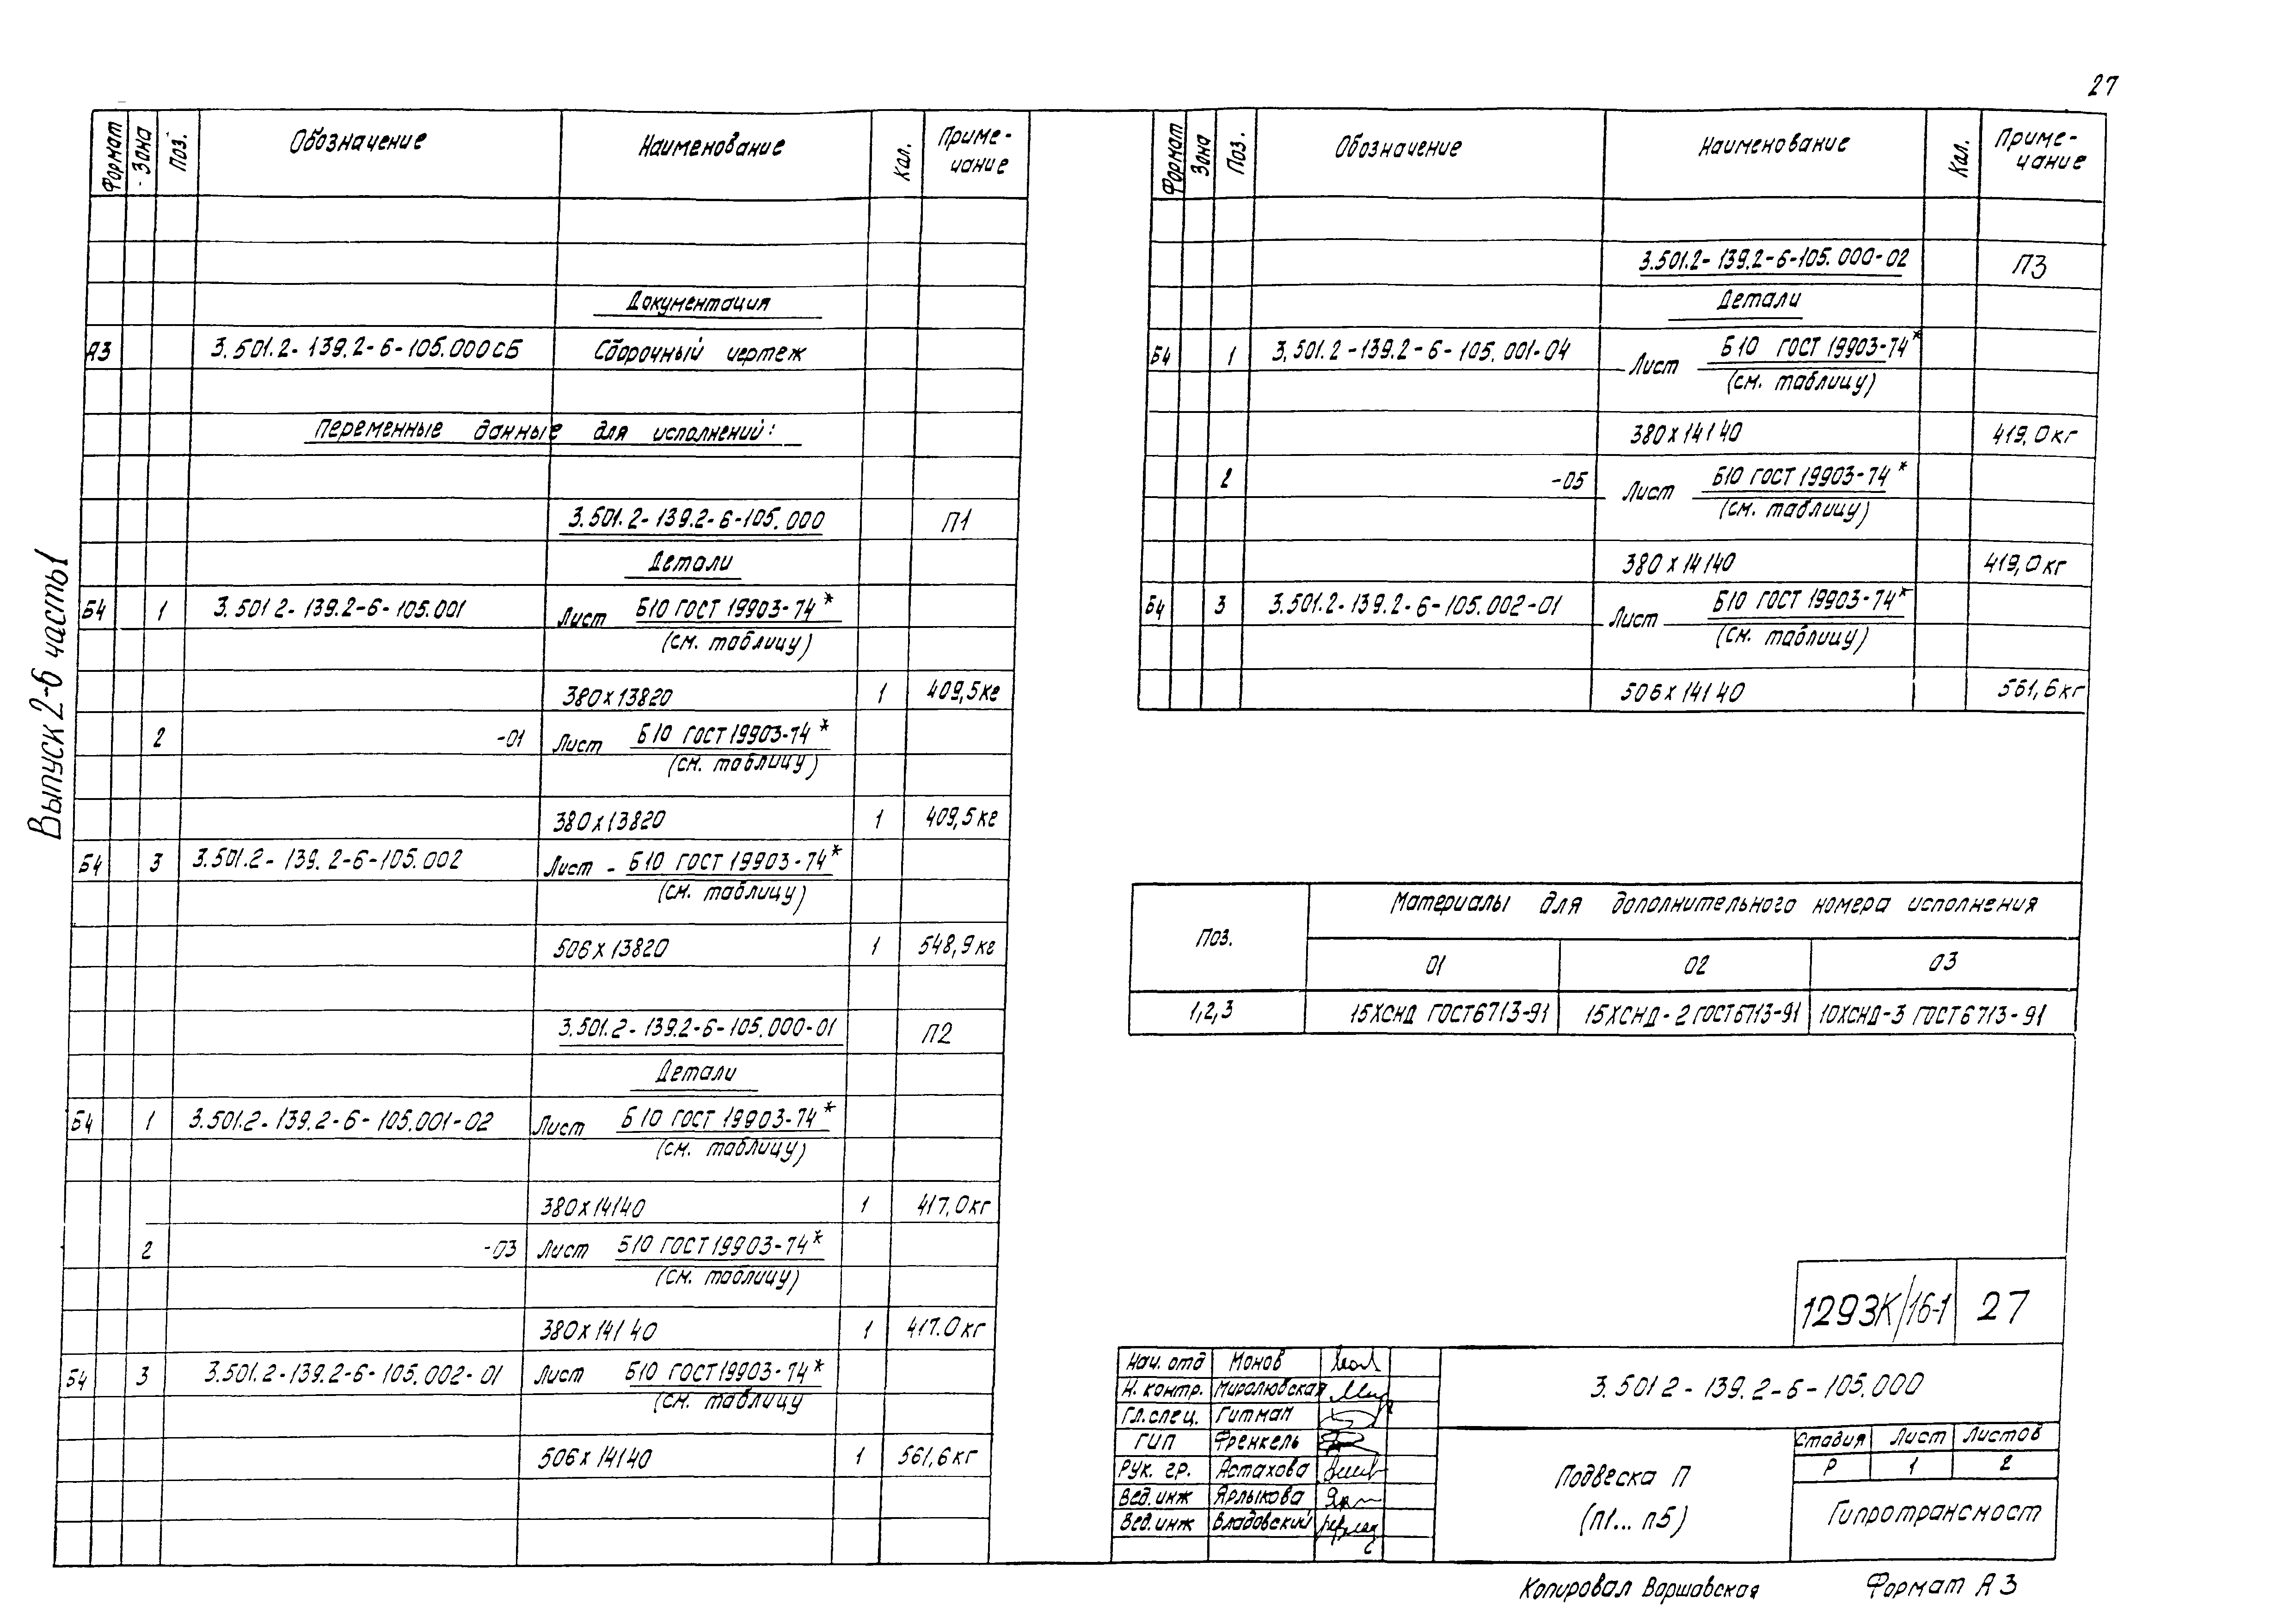 27
Выпуск 2-6 часть 1
Формат Зона Поз. Обозначение Наименование Кол. Приме-
чание
Документация
А3 3.501.2-139.2-6-105.000СБ Сборочный чертеж
Переменные данные для исполнений:
3.501.2-139.2-6-105.000 П1
Детали
Б4 1 3.501 2-139.2-6-105.001 Лист Б10 ГОСТ 19903-74*
(см. таблицу)
380х13820 1 409,5кг
2 -01 Лист Б10 ГОСТ 19903-74*
(см. таблицу)
380х13820 1 409,5кг
Б4 3 3.501.2-139.2-6-105.002 Лист - Б10 ГОСТ 19903-74*
(см. таблицу)
506х13820 1 548,9кг
3.501.2-139.2-6-105.000-01 П2
Детали
Б4 1 3.501.2-139.2-6-105.001-02 Лист Б10 ГОСТ 19903-74*
(см. таблицу)
380х14140 1 417,0кг
2 -03 Лист Б10 ГОСТ 19903-74*
(см. таблицу)
380х14140 1 417.0кг
Б4 3 3.501.2-139.2-6-105.002-01 Лист Б10 ГОСТ 19903-74*
(см. таблицу
506х14140 1 561,6кг
Формат Зона Поз. Обозначение Наименование Кол. Приме-
чание
3.501.2-139.2-6-105.000-02 П3
Детали
Б4 1 3.501.2-139.2-6-105.001-04 Лист Б10 ГОСТ 19903-74*
(см. таблицу)
380х14140 419,0кг
2 -05 Лист Б10 ГОСТ 19903-74*
(см. таблицу)
380х14140 419,0кг
Б4 3 3.501.2-139.2-6-105.002-01 Лист Б10 ГОСТ 19903-74*
(см. таблицу)
506х14140 561,6кг
Поз. Материалы для дополнительного номера исполнения
01 02 03
1,2,3 15ХСНД ГОСТ6713-91 15ХСНД-2 ГОСТ6713-91 10ХСНД-3 ГОСТ6713-91
1293К/16-1 27
Нач. отд Монов
Н. контр. Миролюбская
Гл. спец. Гитман
ГИП Френкель
Рук. гр. Астахова
Вед. инж Ярлыкова
Вед. инж Владовский
3.501 2-139.2-6-105.000
Подвеска П
(П1... П5)
Стадия Лист Листов
Р 1 2
Гипротрансмост
Копировал Варшавская Формат А3